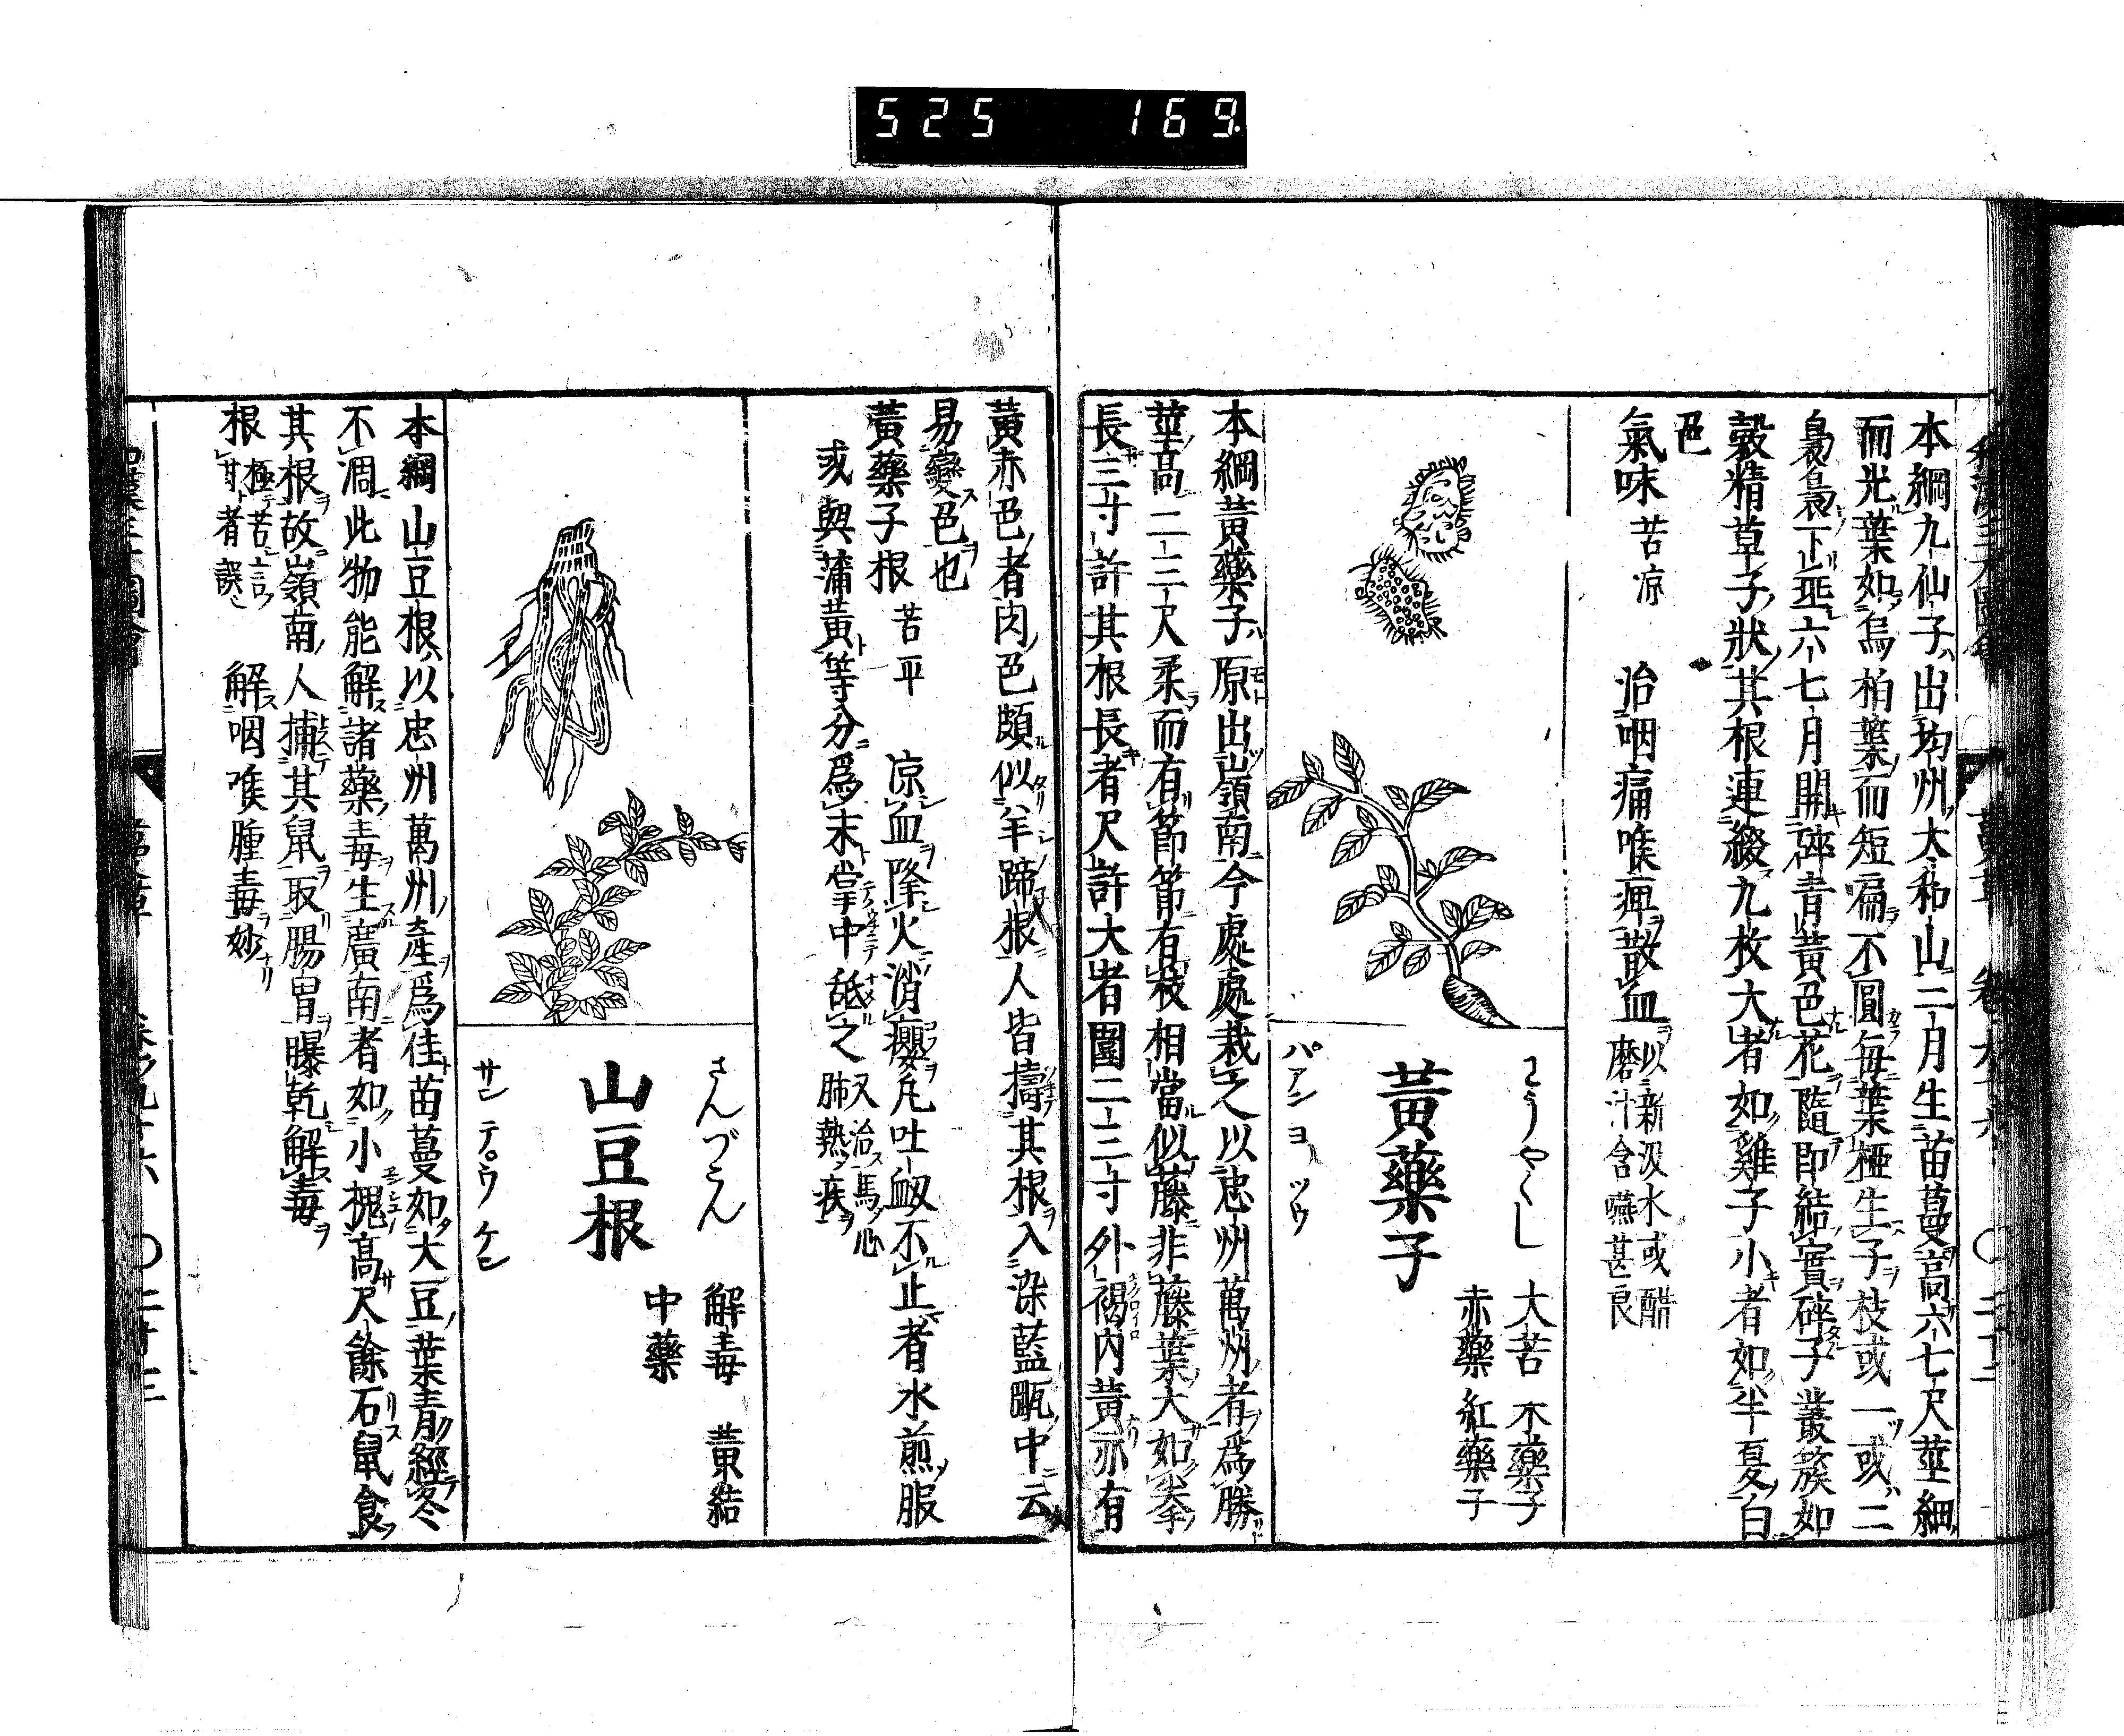 525 169
本綱九仙子出均州大和山二月生苗蔓高六七尺莖細
而光葉如烏桕葉而短扁不圓每葉椏生子枝或一或二
裊裊下埀六七月開碎青黃色花隨即結實碎子叢簇如
穀精草子狀其根連綴九枚大者如雞子小者如半夏白
色
氣味 苦凉 治咽痛喉痺散血 以新汲水或醋
磨汁含嚥甚良
わうやくし
黃藥子
パアン ヨツ ツウ
大苦 木藥子
赤藥 紅藥子
本綱黃藥子原出嶺南今處處栽之以忠州萬州者爲勝
莖高二三尺柔而有節節有枝相當似藤非藤葉大如拳
長三寸許其根長者尺許大者圍二三寸外褐內黃亦有
黃赤色者肉色頗似羊蹄根人皆擣其根入染藍瓶中云
易變色也
黃藥子根 苦平 凉血降火消癭凡吐衂不止者水煎服
或與蒲黃等分爲末掌中舐之 又治馬心
肺熱疾
さんづこん
山豆根
サン テ゜ウ ケン
解毒 黃結
中藥
本綱山豆根以忠州萬州產爲佳苗蔓如大豆葉青經冬
不凋此物能解諸藥毒生廣南者如小槐高尺餘石鼠食
其根故嶺南人捕其鼠取腸胃曝乾解毒
根 極苦言
甘者誤 解咽喉腫毒妙